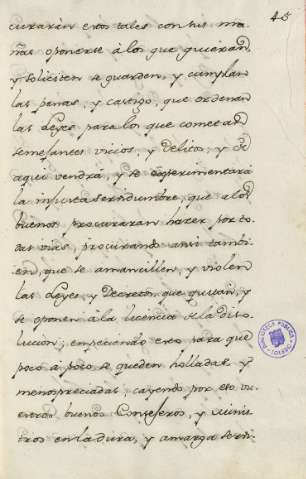 45
curarán estos tales con sus ma-
ñas oponerse á los que quieran,
y soliciten se guarden, y cumplan
las penas, y castigo, que ordenan
las Leyes para los que cometan
semejantes vicios, y delitos, y de
aqui vendrá, y se experimentará
la injusta servidumbre, que a los
buenos procurarán hazer por to-
das vias, procurando ansi tambi-
én, que se amancillen, y violen
las Leyes, y Decretos, que quitan, y
se oponen á la licencia de la diso-
lucion; empezando esto para que
poco a poco se queden holladas y
menospreciadas, cayendo por esto vu-
estros buenos Consejeros, y Minis-
tros en la dura, y amarga servi-
BIBLIOTECA PUBLICA
TOLEDO